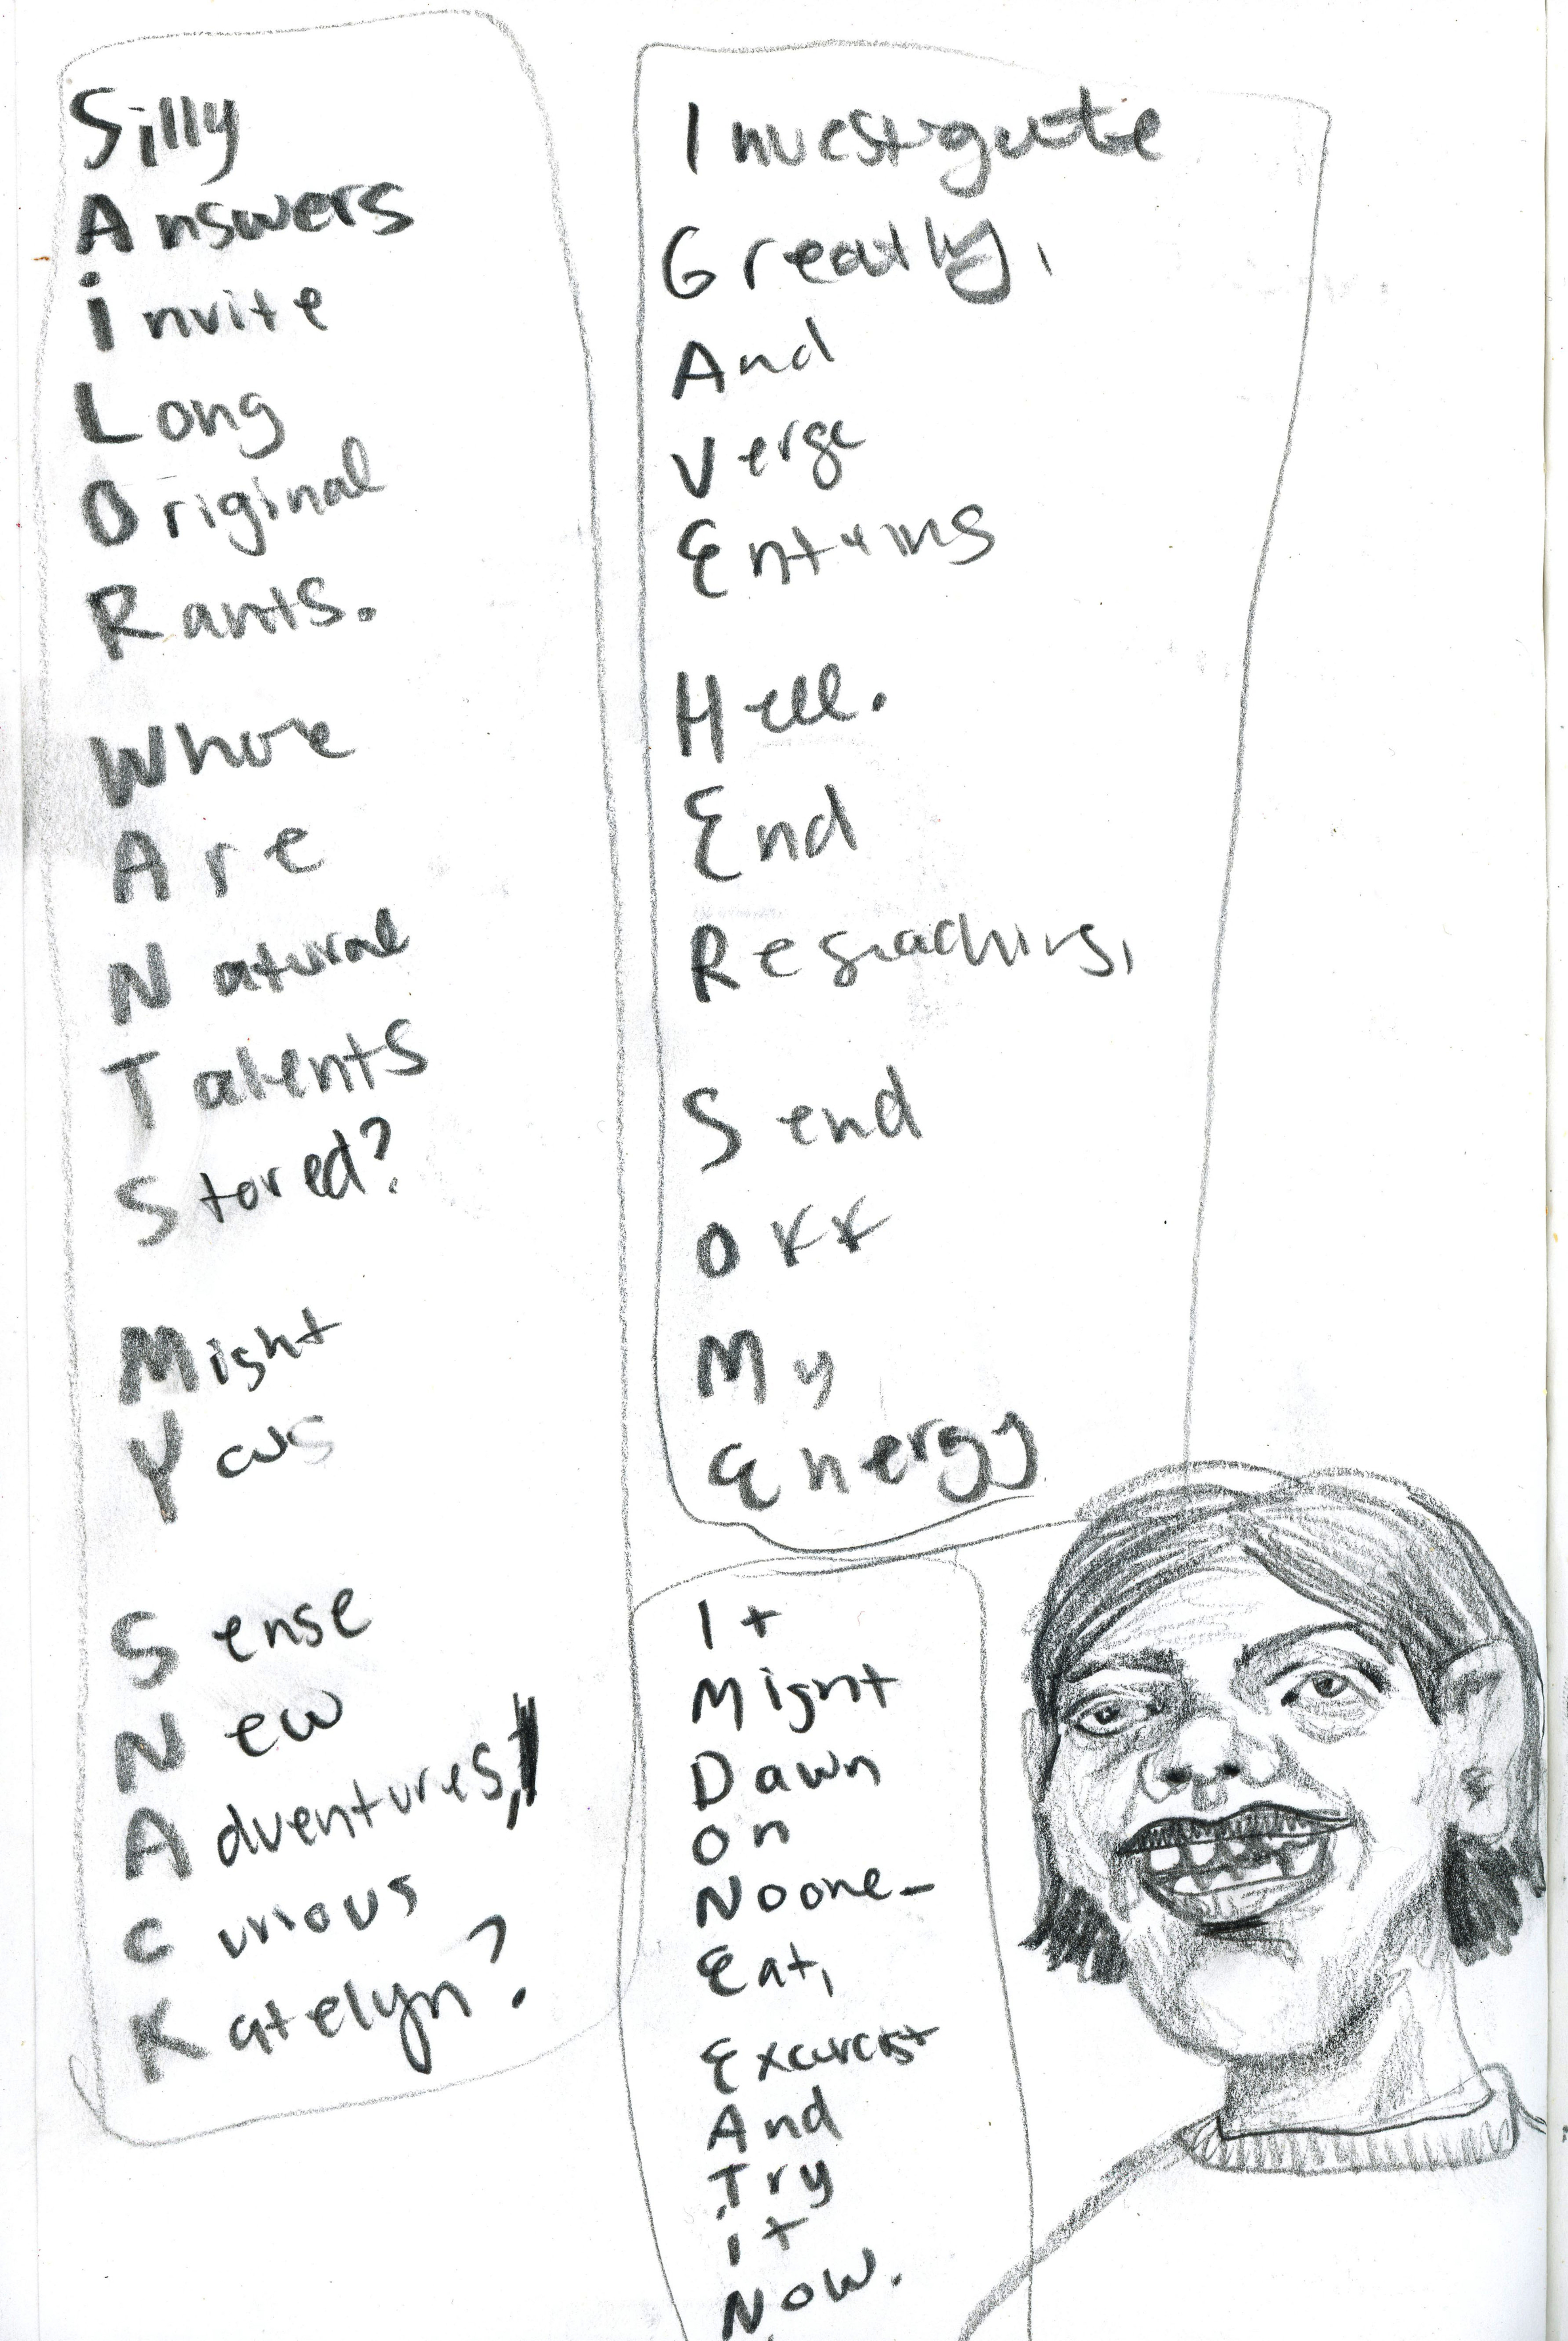 Silly
Answers
invite
Long
Original
Rants.
Whore
Are
Natural
Talents
Stored?
Might
Sense
New
Adventures,
Curious
Katelyn?
Investigate
Greatly,
And
Verge
Hell.
End
Send
OKK
My
Energy
It
Might
Dawn
On
Noone_
Eat,
And
Try
it
Now.